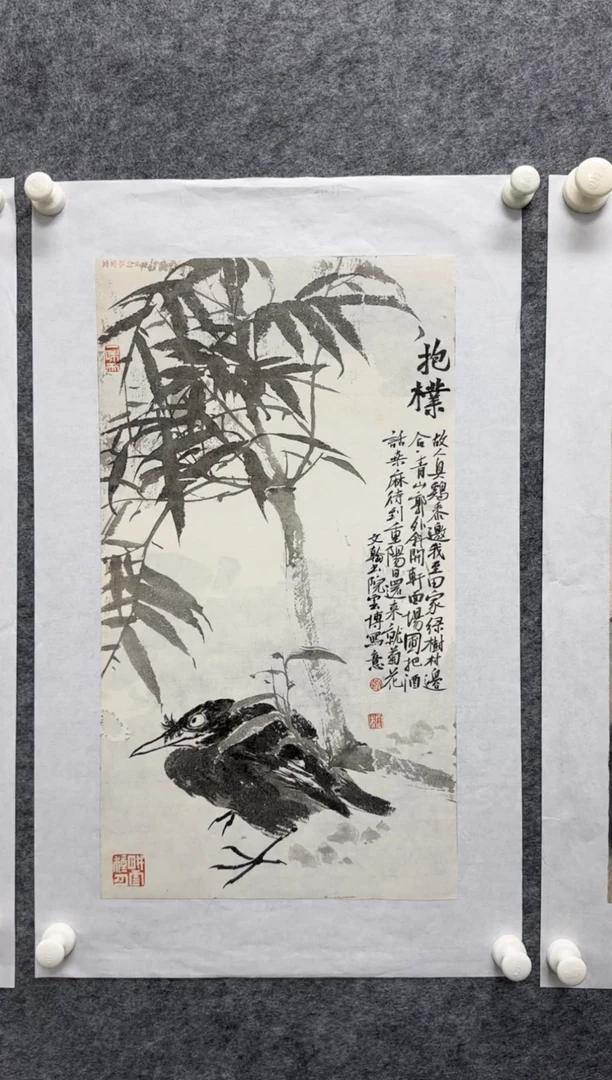 抱樸
故人具鷄黍邀我至田家绿樹村邊
合青山郭外斜開軒面場圃把酒
話桑麻待到重陽日還来就菊花
文翰书院雲博寫意